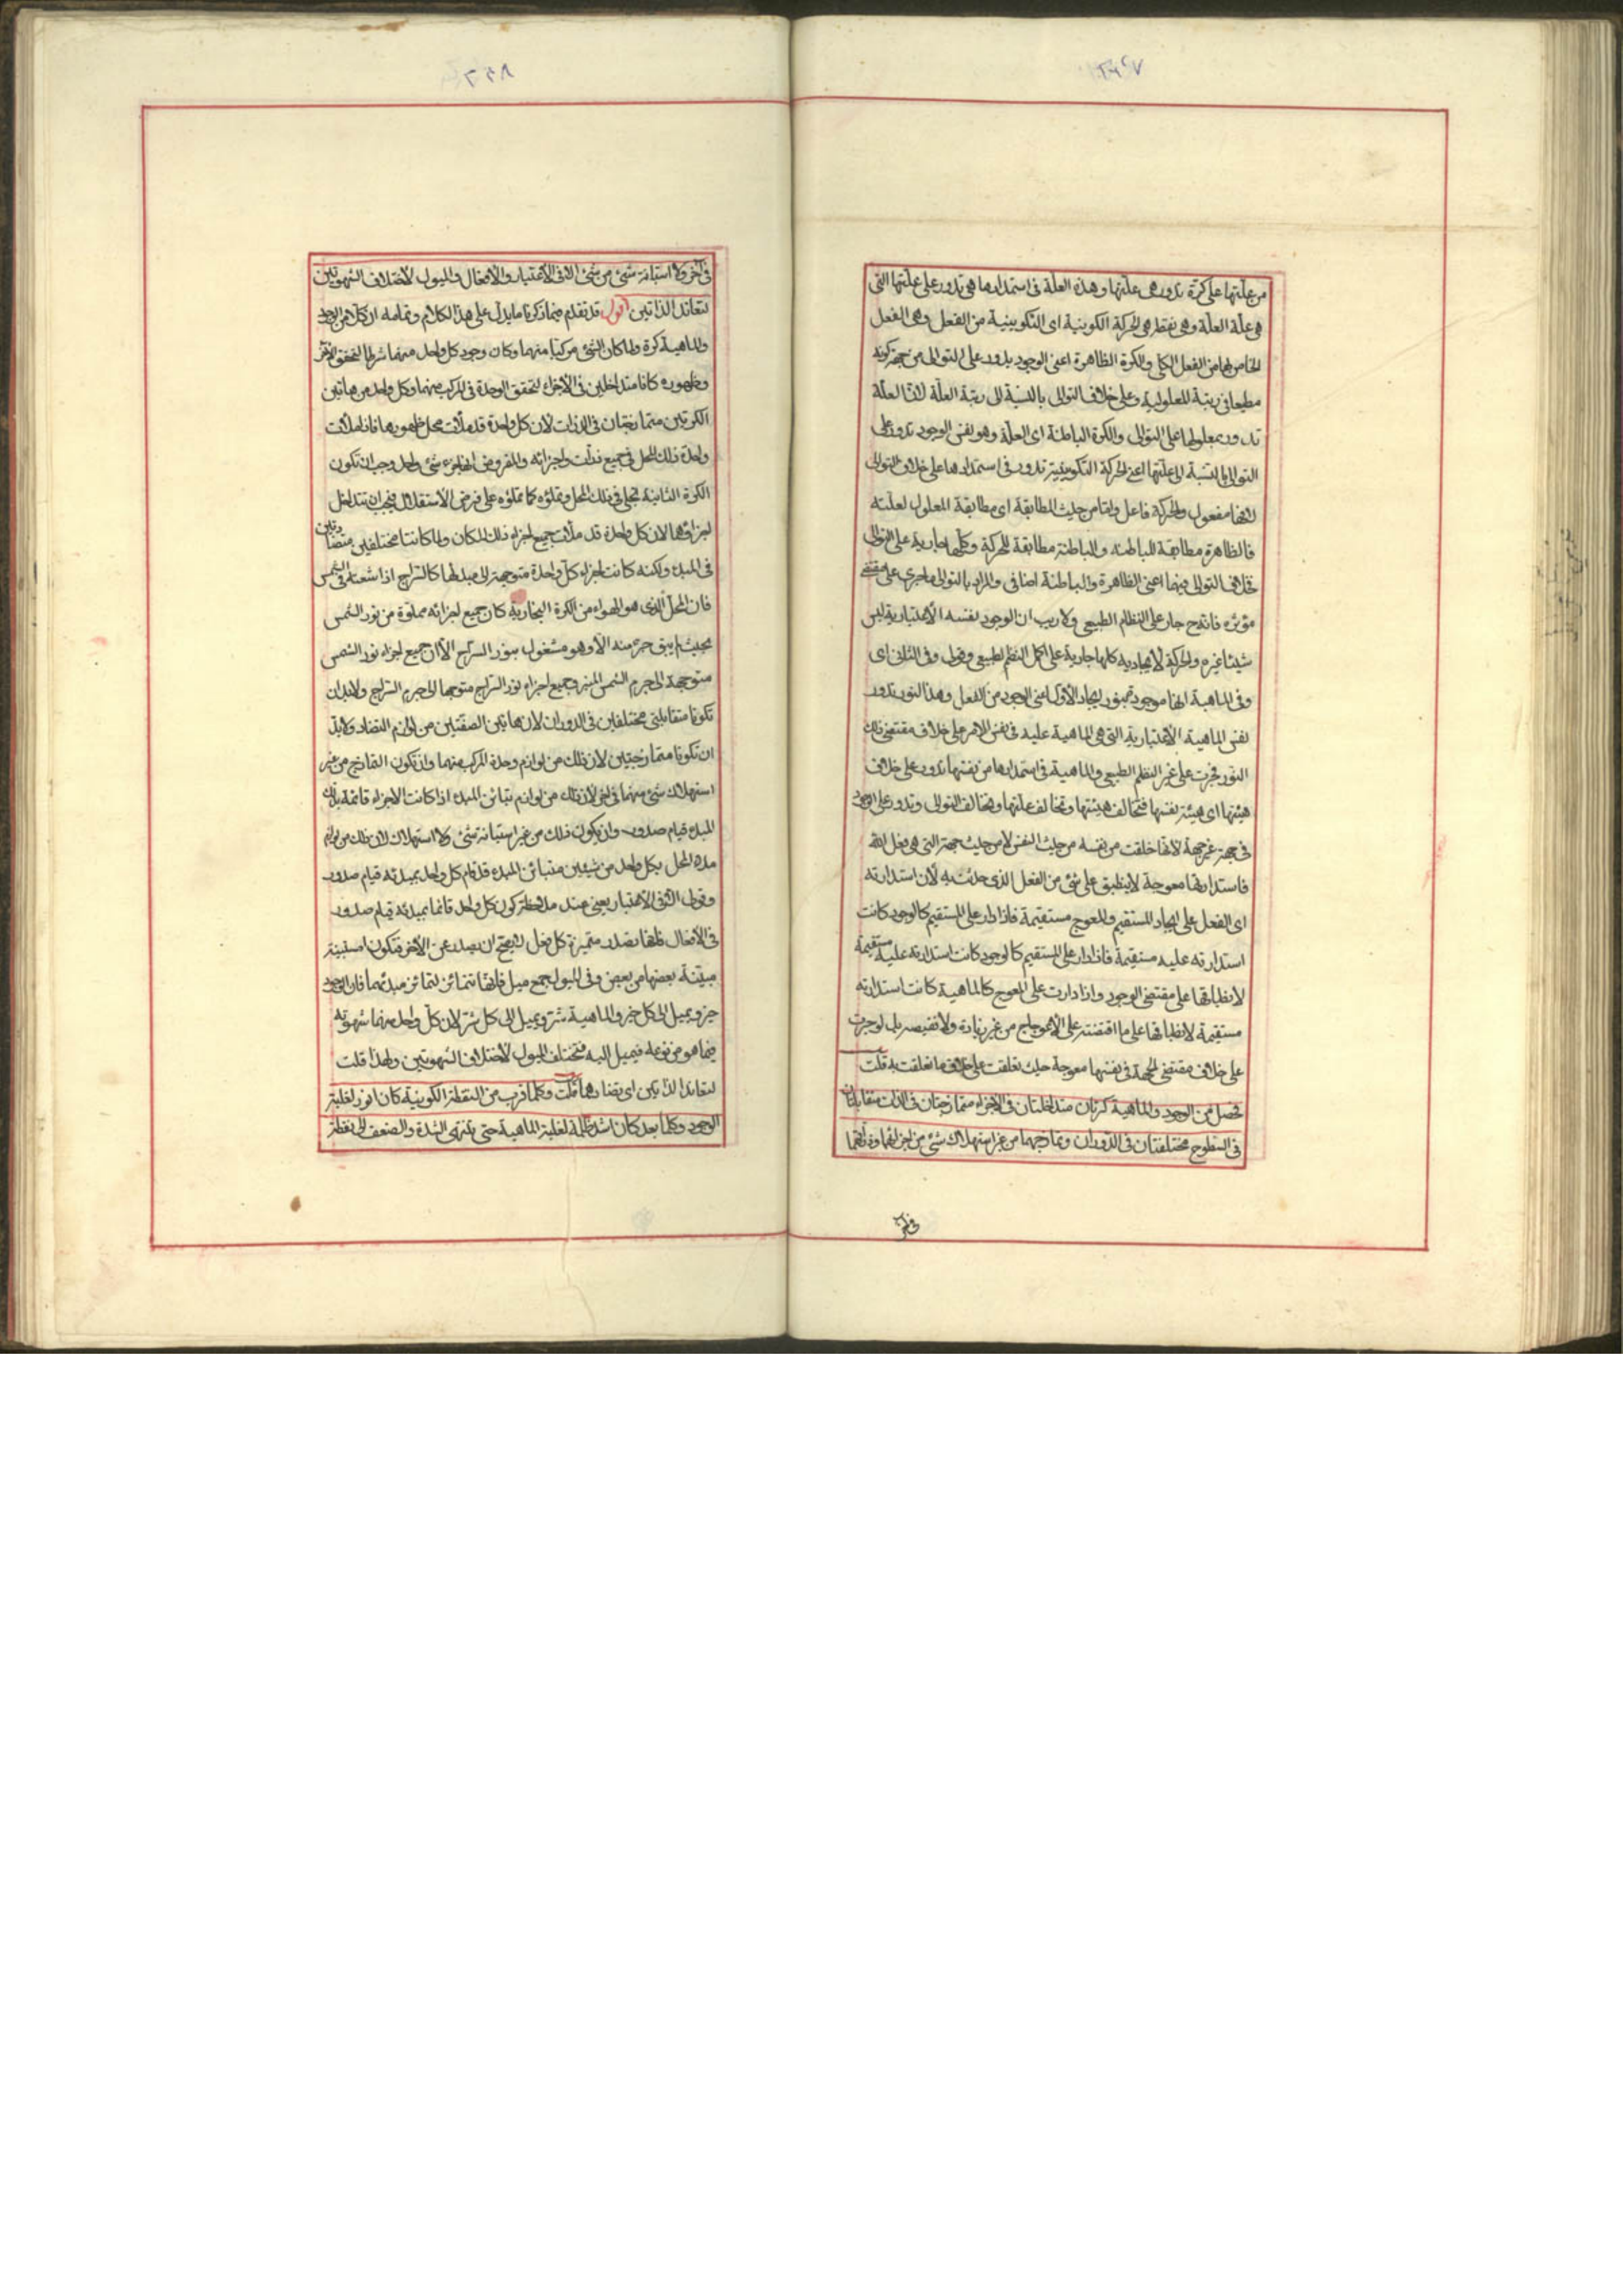 من علّتها على كرة تدور هى علّتها وهذه العلّة فى استمدادها هى تدور على علّتها التى
هى علّة العلّة وهى نقطة هى الحركة الكونية اى التكوينية من الفعل وهى الفعل
الخاص بها من الفعل الكلى والكرة الظاهرة اعنى الوجود يدور على التوالى من جهة كونه
مطيعا فى رتبة المعلولية وعلى خلاف التوالى بالنسبة الى رتبة العلّة لانّ العلّة
تدور بمعلولها على التوالى والكرة الباطنة اى العلّة وهو نفس الوجود تدور على
التوالى بالنسبة الى علّتها اعنى الحركة التكوينية تدور فى استمدادها على خلاف التوالى
لانّها مفعول والحركة فاعل وامّا من حيث المطابقة اى مطابقة المعلول لعلّته
فالظاهرة مطابقة للباطنة والباطنة مطابقة للحركة وكلّها جارية على التوالى
خلاف التوالى فيهما اعنى الظاهرة والباطنة اضافى والمراد بالتوالى ما جرى على مقتضى
مؤثره فانه ح جار على النظام الطبيعى ولا ريب ان الوجود نفسه الاعتبارية ليس
شيئا غيره والحركة الايجادية كلها جارية على اكمل النظم الطبيعى وقولى وفى الثانى اى
وفى الماهية انها موجودة بنور ايجاد الاول اعنى الوجود من الفعل وهذا النور تدور
نفس الماهية الاعتبارية التى هى الماهية عليه فى نفس الامر على خلاف مقتضى ذلك
النور فجرت على غير النظم الطبيعى والماهية فى استمدادها من نفسها تدور على خلاف
هيئتها اى هيئة نفسها فتخالف هيئتها وتخالف علّتها وتخالف التوالى وتدور على الوجود
فى جهة غير جهة لانّها خلقت من نفسه من حيث النفس لا من حيث جهة التى هى فعل الله
فاستدارتها معوجة لا ينطبق على شئ من الفعل الذى حدثت به لأن استدارته
اى الفعل على ايجاد المستقيم والمعوج مستقيمة فاذا دار على المستقيم كالوجود كانت
استدارته عليه مستقيمة فاذا دار على المستقيم كالوجود كانت استدارته عليه مستقيمة
لانطباقها على مقتضى الوجود واذا دارت على المعوج كالماهية كانت استدارته
مستقيمة لانطباقها على ما اقتضته على الاعوجاج من غير زيادة ولا نقيصه بل لو جرت
على خلاف مقتضى الجهة فى نفسها معوجة حيث تعلقت على خلاف ما تعلقت به قلت
فحصل من الوجود والماهية كرتان متداخلتان فى الاجزاء متمازجتان فى الذات متقابلتان
فى السطوح مختلفتان فى الدوران وتمازجهما من غير استهلاك شئ من اجزائهما وذاتهما
فى آخر
فى آخر ولا استبانة شئ من شئ الا فى الاعتبار والافعال والميول لاختلاف الشهوتين
لتعاند الذاتين اقول قد تقدم فيما ذكرنا ما يدل على هذا الكلام وتمامه ان كلا من الوجود
والماهية كرة ولما كان الشئ مركبا منهما وكان وجود كل واحد منهما شرطا لتحقق الاخر
وظهوره كانا متداخلين فى الاجزاء لتحقق الوحدة فى المركب منهما وكل واحد من هاتين
الكرتين متمازجتان فى الذات لان كل واحدة قد ملأت محل ظهورها فاذا ملأت
واحدة ذلك المحل فى جميع ذراته واجزائه والمفروض انهما جزء شئ واحد وجب ان تكون
الكرة الثانية تحل فى ذلك المحل وتملؤه كما تملؤه على فرض الاستقلال فيجب ان تتداخل
اجزاؤهما لان كل واحدة قد ملأت جميع اجزاء ذلك المكان ولما كانتا مختلفين متضادتين
فى المبدء ولكنه كانت اجزاء كل واحدة متوجهة الى مبدئها كالسراج اذا اشعلته فى الشمس
فان المحل الذى هو الهواء من الكرة البخارية كان جميع اجزائه مملوة من نور الشمس
بحيث لم يبق جزء منه الا وهو مشغول بنور السراج الا ان جميع اجزاء نور الشمس
متوجهة الى جرم الشمس المنير وجميع اجزاء نور السراج متوجها الى جرم السراج ولابد ان
تكونا متقابلتى مختلفين فى الدوران لان هاتين الصفتين من لوازم التضاد ولابدّ
ان تكونا متمازجتين لان ذلك من لوازم وحدة المركب منهما وان تكون التمازج من غير
استهلاك شئ منهما فى اخر لان ذلك من لوازم تبائن المبدء اذا كانت الاجزاء قائمة بذلك
المبدء قيام صدور وان يكون ذلك من غير استبانة شئ ولا استهلاك لان ذلك من لوازم
ملاء المحل بكل واحد من شيئين متبائن المبدء قد قام كل واحد بمبدئه قيام صدور
وقولى الا فى الاعتبار يعنى عند ملاحظة كون كل واحد قائما بمبدئه قيام صدور
فى الافعال فانها تصدر متميزة كل فعل لا يصح ان يصدر عن الاخر فتكون مستبينة
مبيّنة بعضها من بعض وفى الميول جمع ميل فانها تتمائز لتمائز مبدئهما فان الوجود
خير ويميل الى كل خير والماهية شر ويميل الى كل شر لان كل واحد منهما شهوته
فيما هو من نوعه فيميل اليه فتختلف الميول لاختلاف الشهوتين ولهذا قلت
لتعاند الذاتين اى تضادهما قلت وكلما قرب من النقطة الكونية كان انور لغلبة
الوجود وكلما بعد كان اشد ظلمة لغلبة الماهية حتى ينتهى الشدة والضعف الى نقطة